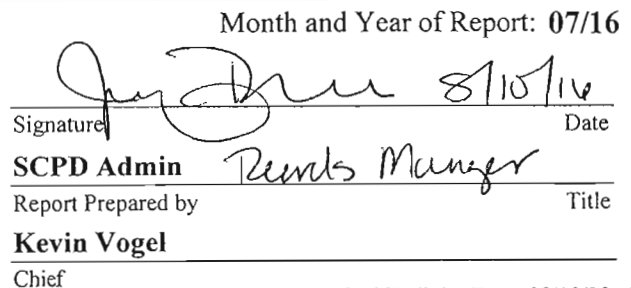 Month and Year of Report: 07/16
8/10/16
Signature Date
SCPD Admin Records Manager
Report Prepared by Title
Kevin Vogel
Chief